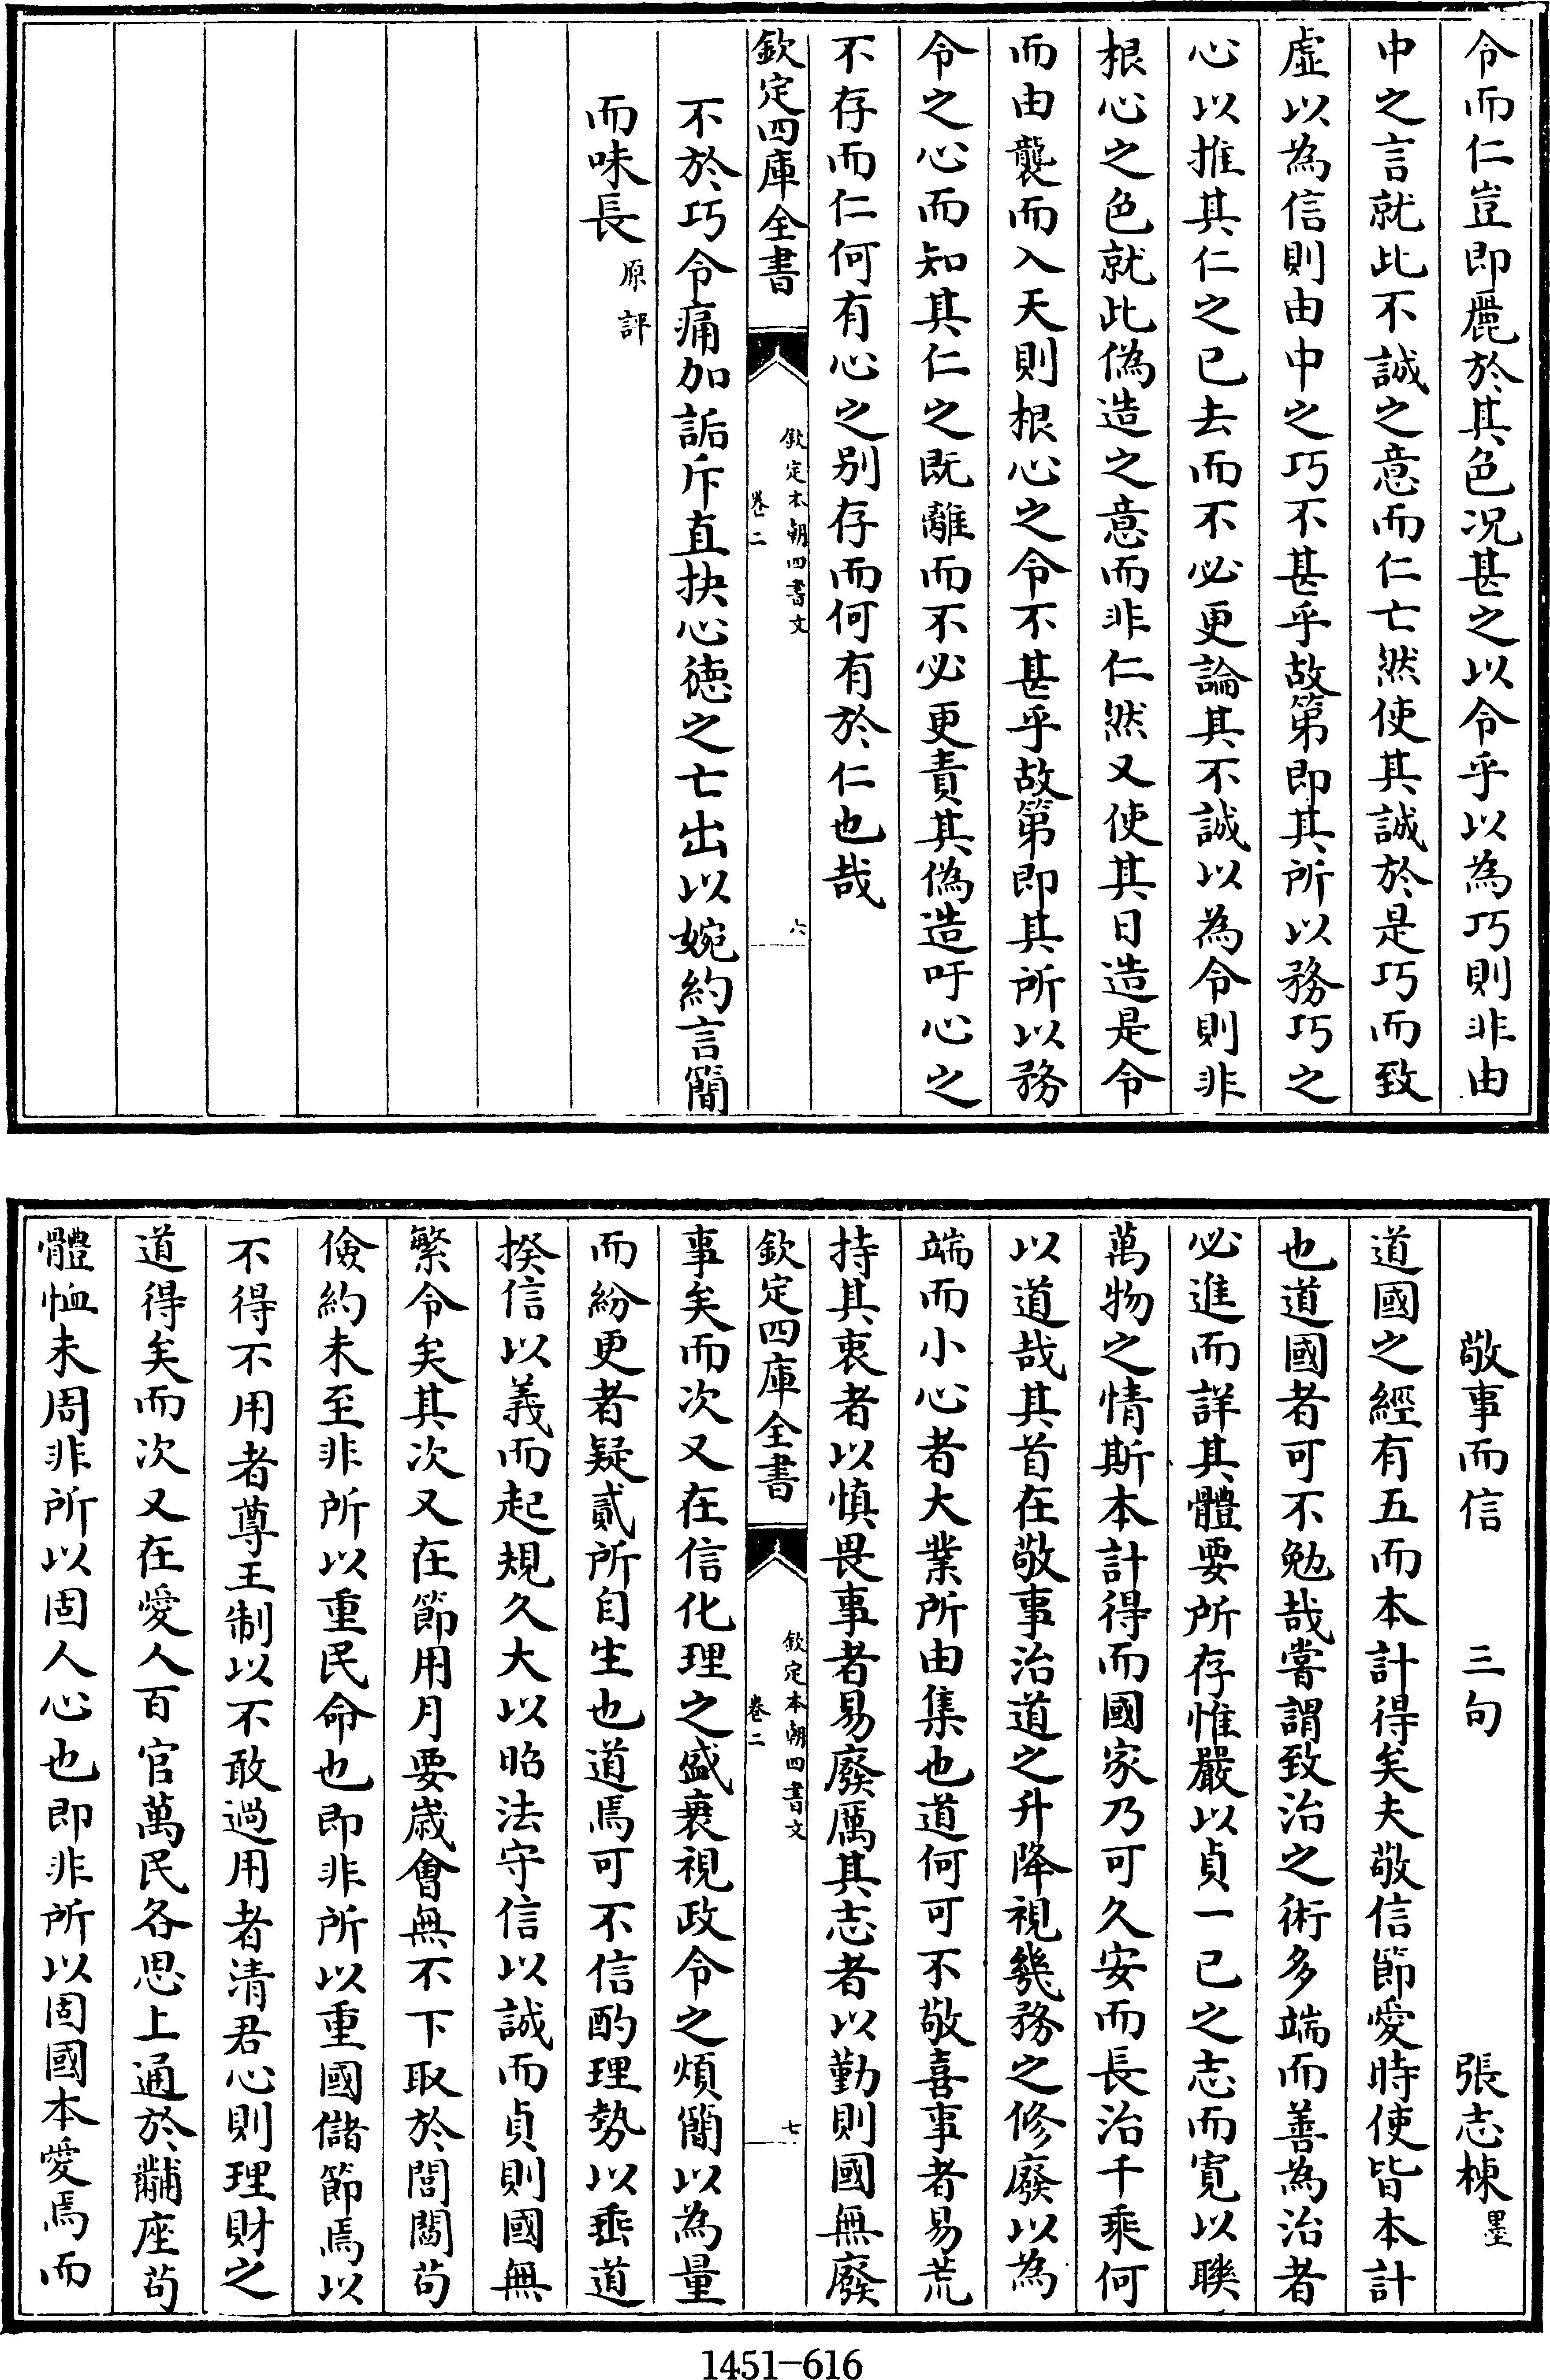 令而仁豈即麗於其色况甚之以令乎以為巧則非由
中之言就此不誠之意而仁亡然使其誠於是巧而致
虛以為信則由中之巧不甚乎故第即其所以務巧之
心以推其仁之已去而不必更論其不誠以為令則非
根心之色就此偽造之意而非仁然又使其日造是令
而由襲而入天則根心之令不甚乎故第即其所以務
令之心而知其仁之既離而不必更責其偽造吁心之
不存而仁何有心之别存而何有於仁也哉
欽定四庫全書
欽定本朝四書文
卷二
六
不於巧令痛加詬斥直抉心德之亡出以婉約言簡
而味長原評
敬事而信 三句 張志棟墨
道國之經有五而本計得矣夫敬信節愛時使皆本計
也道國者可不勉哉嘗謂致治之術多端而善為治者
必進而詳其體要所存惟嚴以貞一已之志而寬以聨
萬物之情斯本計得而國家乃可久安而長治千乘何
以道哉其首在敬事治道之升降視幾務之修廢以為
端而小心者大業所由集也道何可不敬喜事者易荒
持其衷者以慎畏事者易廢厲其志者以勤則國無廢
欽定四庫全書
欽定本朝四書文
卷二
七
事矣而次又在信化理之盛衰視政令之煩簡以為量
而紛更者疑貳所自生也道焉可不信酌理勢以垂道
揆信以義而起規久大以昭法守信以誠而貞則國無
繁令矣其次又在節用月要歲會無不下取於閭閻茍
儉約未至非所以重民命也即非所以重國儲節焉以
不得不用者尊王制以不敢過用者清君心則理財之
道得矣而次又在愛人百官萬民各思上通於黼座茍
體恤未周非所以固人心也即非所以固國本愛焉而
1451-616